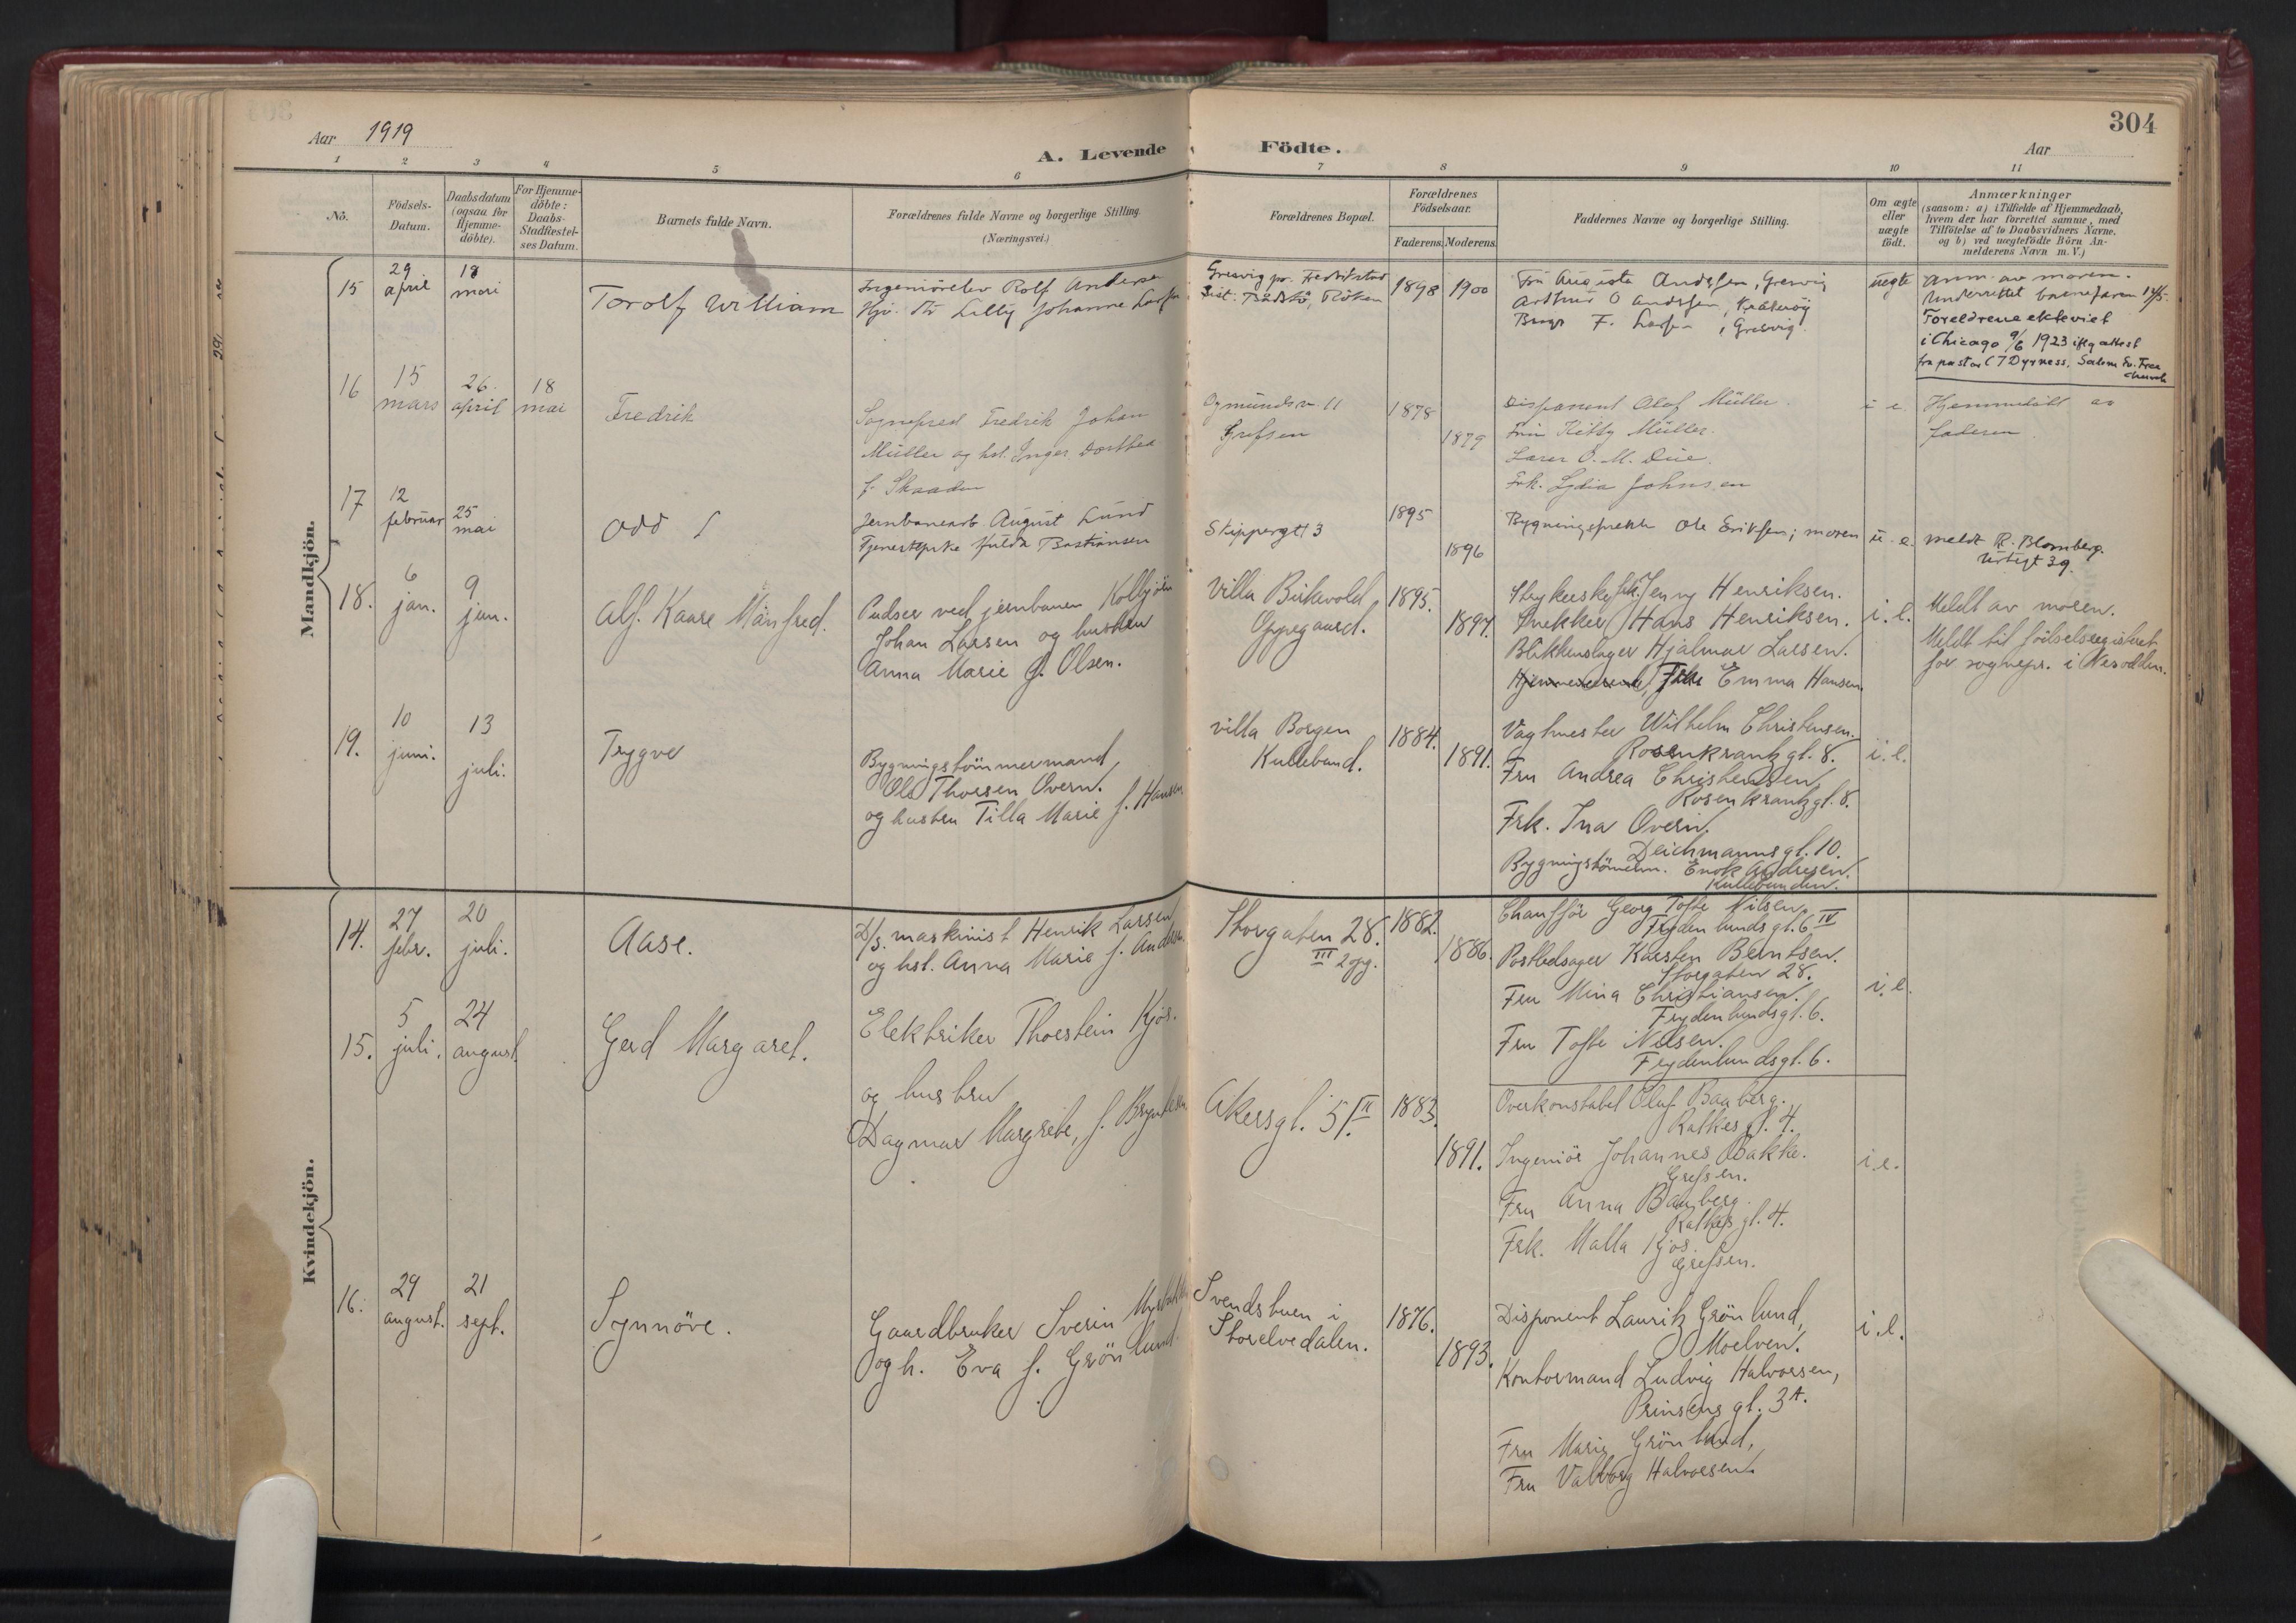 304
Aar 1919
A. Levende Födte.
Aar
1 2 3 4 5 6 7 8 9 10 11
Nö.
Födsels-
Datum.
Daabsdatum
(ogsaa for
Hjemme-
döbte).
For Hjemme-
döbte:
Daabs-
Stadfæstel-
ses Datum.
Barnets fulde Navn.
Forældrenes fulde Navne og borgerlige Stilling.
(Næringsvei.)
Forældrenes Bopæl.
Forældrenes
Födselsaar.
Faderens. Moderens.
Faddernes Navne og borgerlige Stilling.
Om ægte
eller
uægte
födt.
Anmærkninger
(saasom: a) i Tilfælde af Hjemmedaab,
hvem der har forrettet samme, med
Tilföielse af to Daabsvidners Navne,
og b) ved uægtefödte Börn An-
melderens Navn m. V.)
Mandkjön.
15
29
april
18
mai
Torolf William
Ingeniörelev Rolf Anderse
Hjv. Lilly Johanne
Gresvig pr. Fredrikstad
Röken
1898
1900
Fru Augusta Andersen, Gresvig
Arthur O Andersen, Kraakeröy
F. , Gresvig.
uegte
anm. av moren.
Underrettet barnefaren
Foreldrene ekteviet
i Chicago 9/6 1923 iflg attest
fra pastor C T Dyrness, Salem Ev. Free
Church
16
15
mars
26.
april
18
mai
Fredrik
Sognepred Fredrik Johan
Müller og hst. Inger Dorthea
f. Skaaden
Ogmundsv. 11
Grefsen
1878
1879
Disponent Olaf Müller.
Fru Kitty Müller.
Lærer O. M. Due.
Frk. Lydia Johnsen
i e.
Hjemmedöbt av
faderen
17
12
februar
25
mai
Odd
Jernbanearb August Lund
Hulda Bastiansen
Skippergt 3
1895
1896
Ole Eriksen; moren
u. e.
meldt R. Blomberg.
Urtegt 39.
18.
6
jan.
9
jun.
Alf Kaare Manfred.
Pudser ved jernbanen Kolbjörn
Johan Larsen og hustru
Anna Marie f. Olsen.
Villa Birkevold
Oppegaard.
1895.
1897.
Jenny Henriksen.
Snekker Hans Henriksen.
Blikkenslager Hjalmar Larsen.
Emma Hansen.
i. e.
Meldt av moren.
Meldt til födselsregisteret
for sognepr. i Nesodden.
19.
10
juni.
13
juli.
Trygve
Bygningstömmermand
Ole Thorsen Overn.
og hustru Tilla Marie f. Hansen
villa Borgen
Kullebund.
1884.
1891.
Vagtmester Wilhelm Christensen.
Rosenkrantzgt. 8.
Fru Andrea Christensen,
Rosenkrantzgt. 8.
Frk. Ina Overn.
Deichmannsgt. 10.
Bygningstömm. Enok Andresen.
Kullebunden.
i. e.
Kvindekjön.
14.
27
febr.
20
juli.
Aase.
D/s. maskinist Henrik Larsen
og hst. Anna Marie f. Andersen.
Storgaten 28.
III 2 opg.
1882.
1886.
Chaufför Georg Tofte Nilsen.
Frydenlundsgt. 6 IV
Postledsager Karsten Berntsen.
Storgaten 28.
Fru Mina Christiansen.
Frydenlundsgt. 6.
Fru Tofte Nilsen.
Frydenlundsgt. 6.
i. e.
15.
5
juli.
24
august
Gerd Margaret.
Elektriker Thorstein Kjös.
og hustru
Dagmar Margrete, f.
Akersgt. 5 II.
1883.
1891.
Overkonstabel Olaf Baaberg.
Ratkesgt. 4.
Ingeniör Johannes Bakke.
Grefsen.
Fru Anna Baaberg.
Ratkesgt. 4.
Frk. Malla Kjös.
Grefsen.
i. e.
16.
29
august.
21
sept.
Synnöve.
Gaardbruker Sverin
og h. Eva f. Grönlund.
Svendstuen i
Storelvedalen.
1876.
1893.
Disponent Lauritz Grönlund,
Moelven.
Kontormand Ludvig Halvorsen,
Prinsens gt. 3 A.
Fru Marie Grönlund,
Fru Valborg Halvorsen.
i. e.